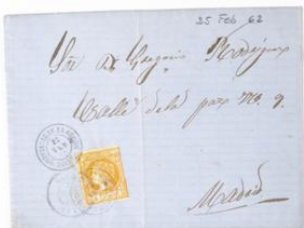 25 Feb 62
Sr. Dn Gregorio Rodriguez
Calle de la paz No. 9.
Madrid